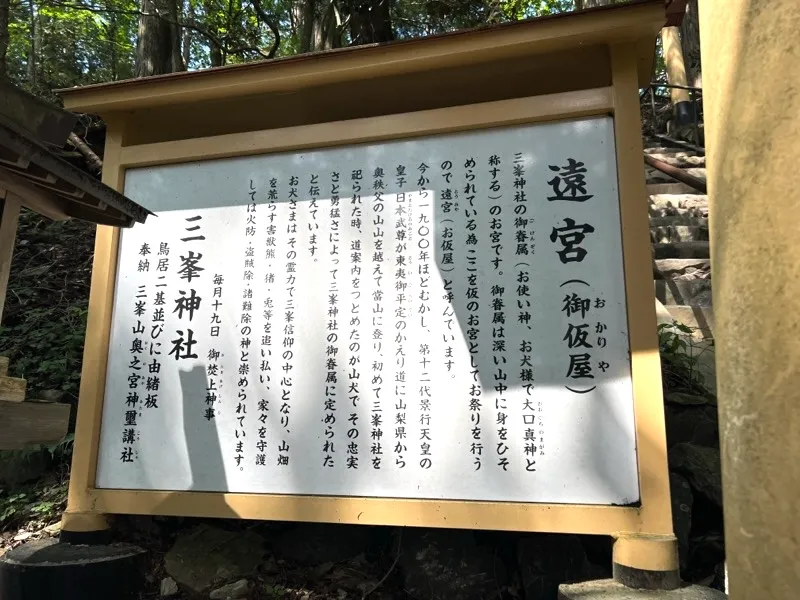 遠宮(御仮屋)
おかりや
三峯神社の御眷属(お使い神、お犬様で大口真神と
称する)のお宮です。御眷属は深い山中に身をひそ
められている為ここを仮のお宮としてお祭りを行う
ので遠宮(お仮屋)と呼んでいます。
今から一九〇〇年ほどむかし、第十二代景行天皇の
皇子日本武尊が東夷御平定のかえり道に山梨県から
奥秩父の山山を越えて當山に登り、初めて三峯神社を
祀られた時、道案内をつとめたのが山犬で その忠実
さと勇猛さによって三峯神社の御眷属に定められた
と伝えています。
お犬さまは その霊力で三峯信仰の中心となり、山畑
を荒らす害獣熊・猪・兎等を追い払い、家々を守護
しては火防・盗賊除・諸難除の神と崇められています。
毎月十九日 御焚上神事
三峯神社
鳥居二基並びに由緒板
奉納 三峯山奥之宮神璽講社